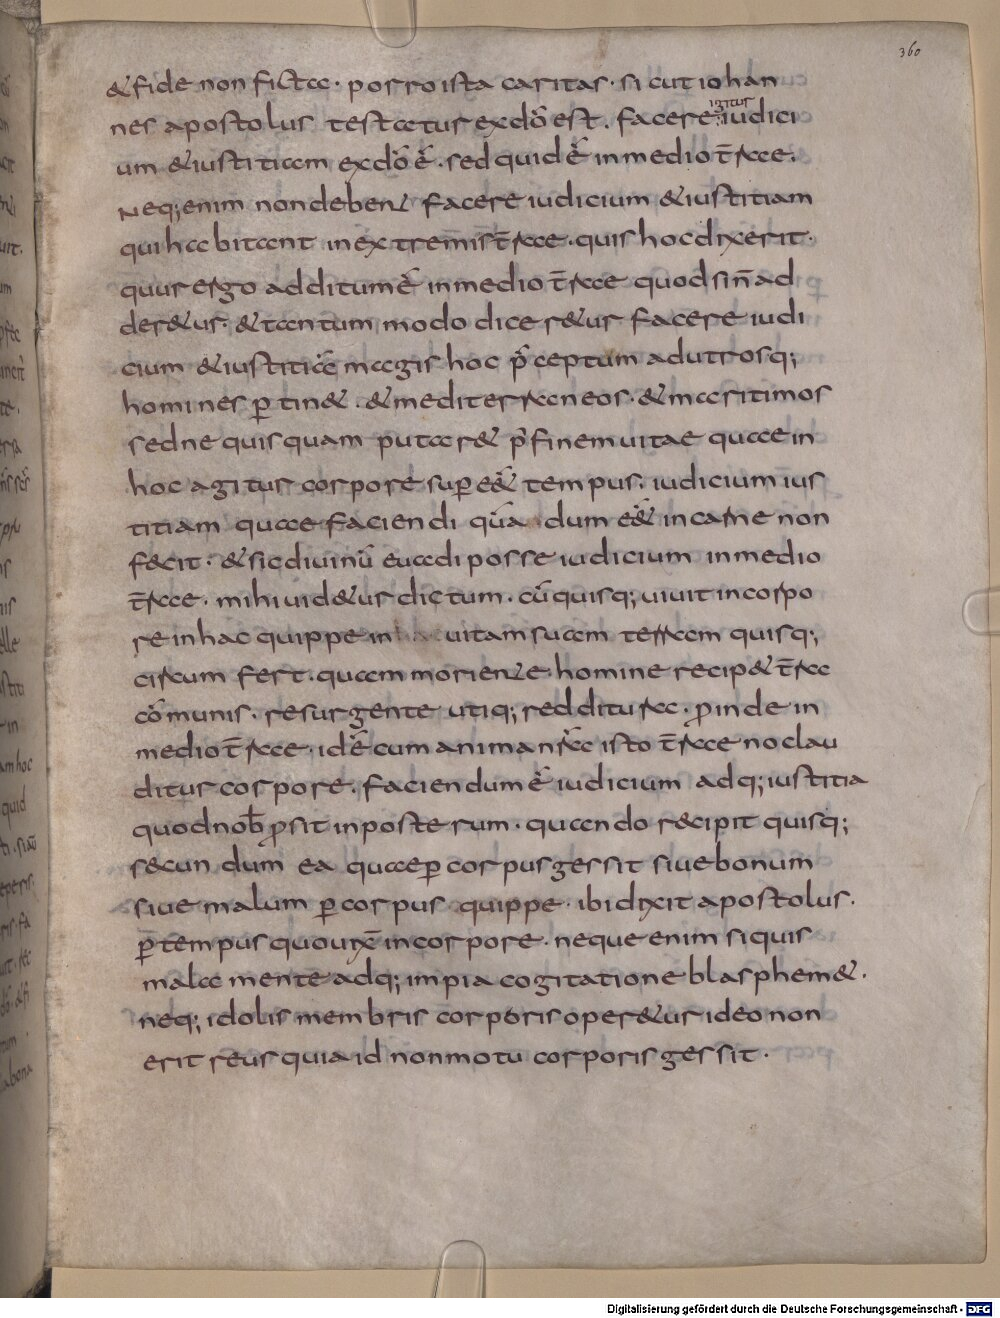 360
&fide non ficta· porro ista caritas· sicut iohan
nes apostolus testatur exdō est. facere igitur iudici
um &iustitiam exdō ē· sed quid ē inmedio t̄rae.
Neq; enim non deben̄ facere iudicium &iustitiam
qui habitant in extremis t̄rae· quis hoc dixerit·
quur ergo additum ē inmedio t̄rae quod sin̄ ad
der&ur· &tantum modo dicer&ur facere iudi
cium &iustitiā magis hoc p̄ceptum ad utrosq;
homines ꝑtin&· &mediterraneos· &maritimos
sed ne quisquam putar& p̄ finem uitae quae in
hoc agitur corpore sup eē& tempus· iudicium ius
titiam quae faciendi q̄ua dum eē& in carne non
fecit· &sic diuinū euadi posse iudicium inmedio
t̄rae· mihi uid&ur dictum· cū quisq; uiuit incorpo
re in hac quippe in uitam suam terram quisq;
circum fert· quam morien̄e homine recip& t̄ra
cōmunis· resurgente utiq; redditura· ꝓinde in
medio t̄rae· idē cum anima nr̄a isto t̄rae no clau
ditur corpore· faciendum ē iudicium adq; iustitia
quod nob̄ ꝓsit in posterum· quando recipit quisq;
secundum ea quae ꝑ corpus gessit siue bonum
siue malum ꝑ corpus quippe· ibi dixit apostolus·
ꝑ tempus quo uix̄ in corpore· neque enim siquis
mala mente adq; impia cogitatione blasphem&·
neq; idolis membris corporis oper&ur ideo non
erit reus quia id non motu corporis gessit·
Digitalisierung gefördert durch die Deutsche Forschungsgemeinschaft - DFG